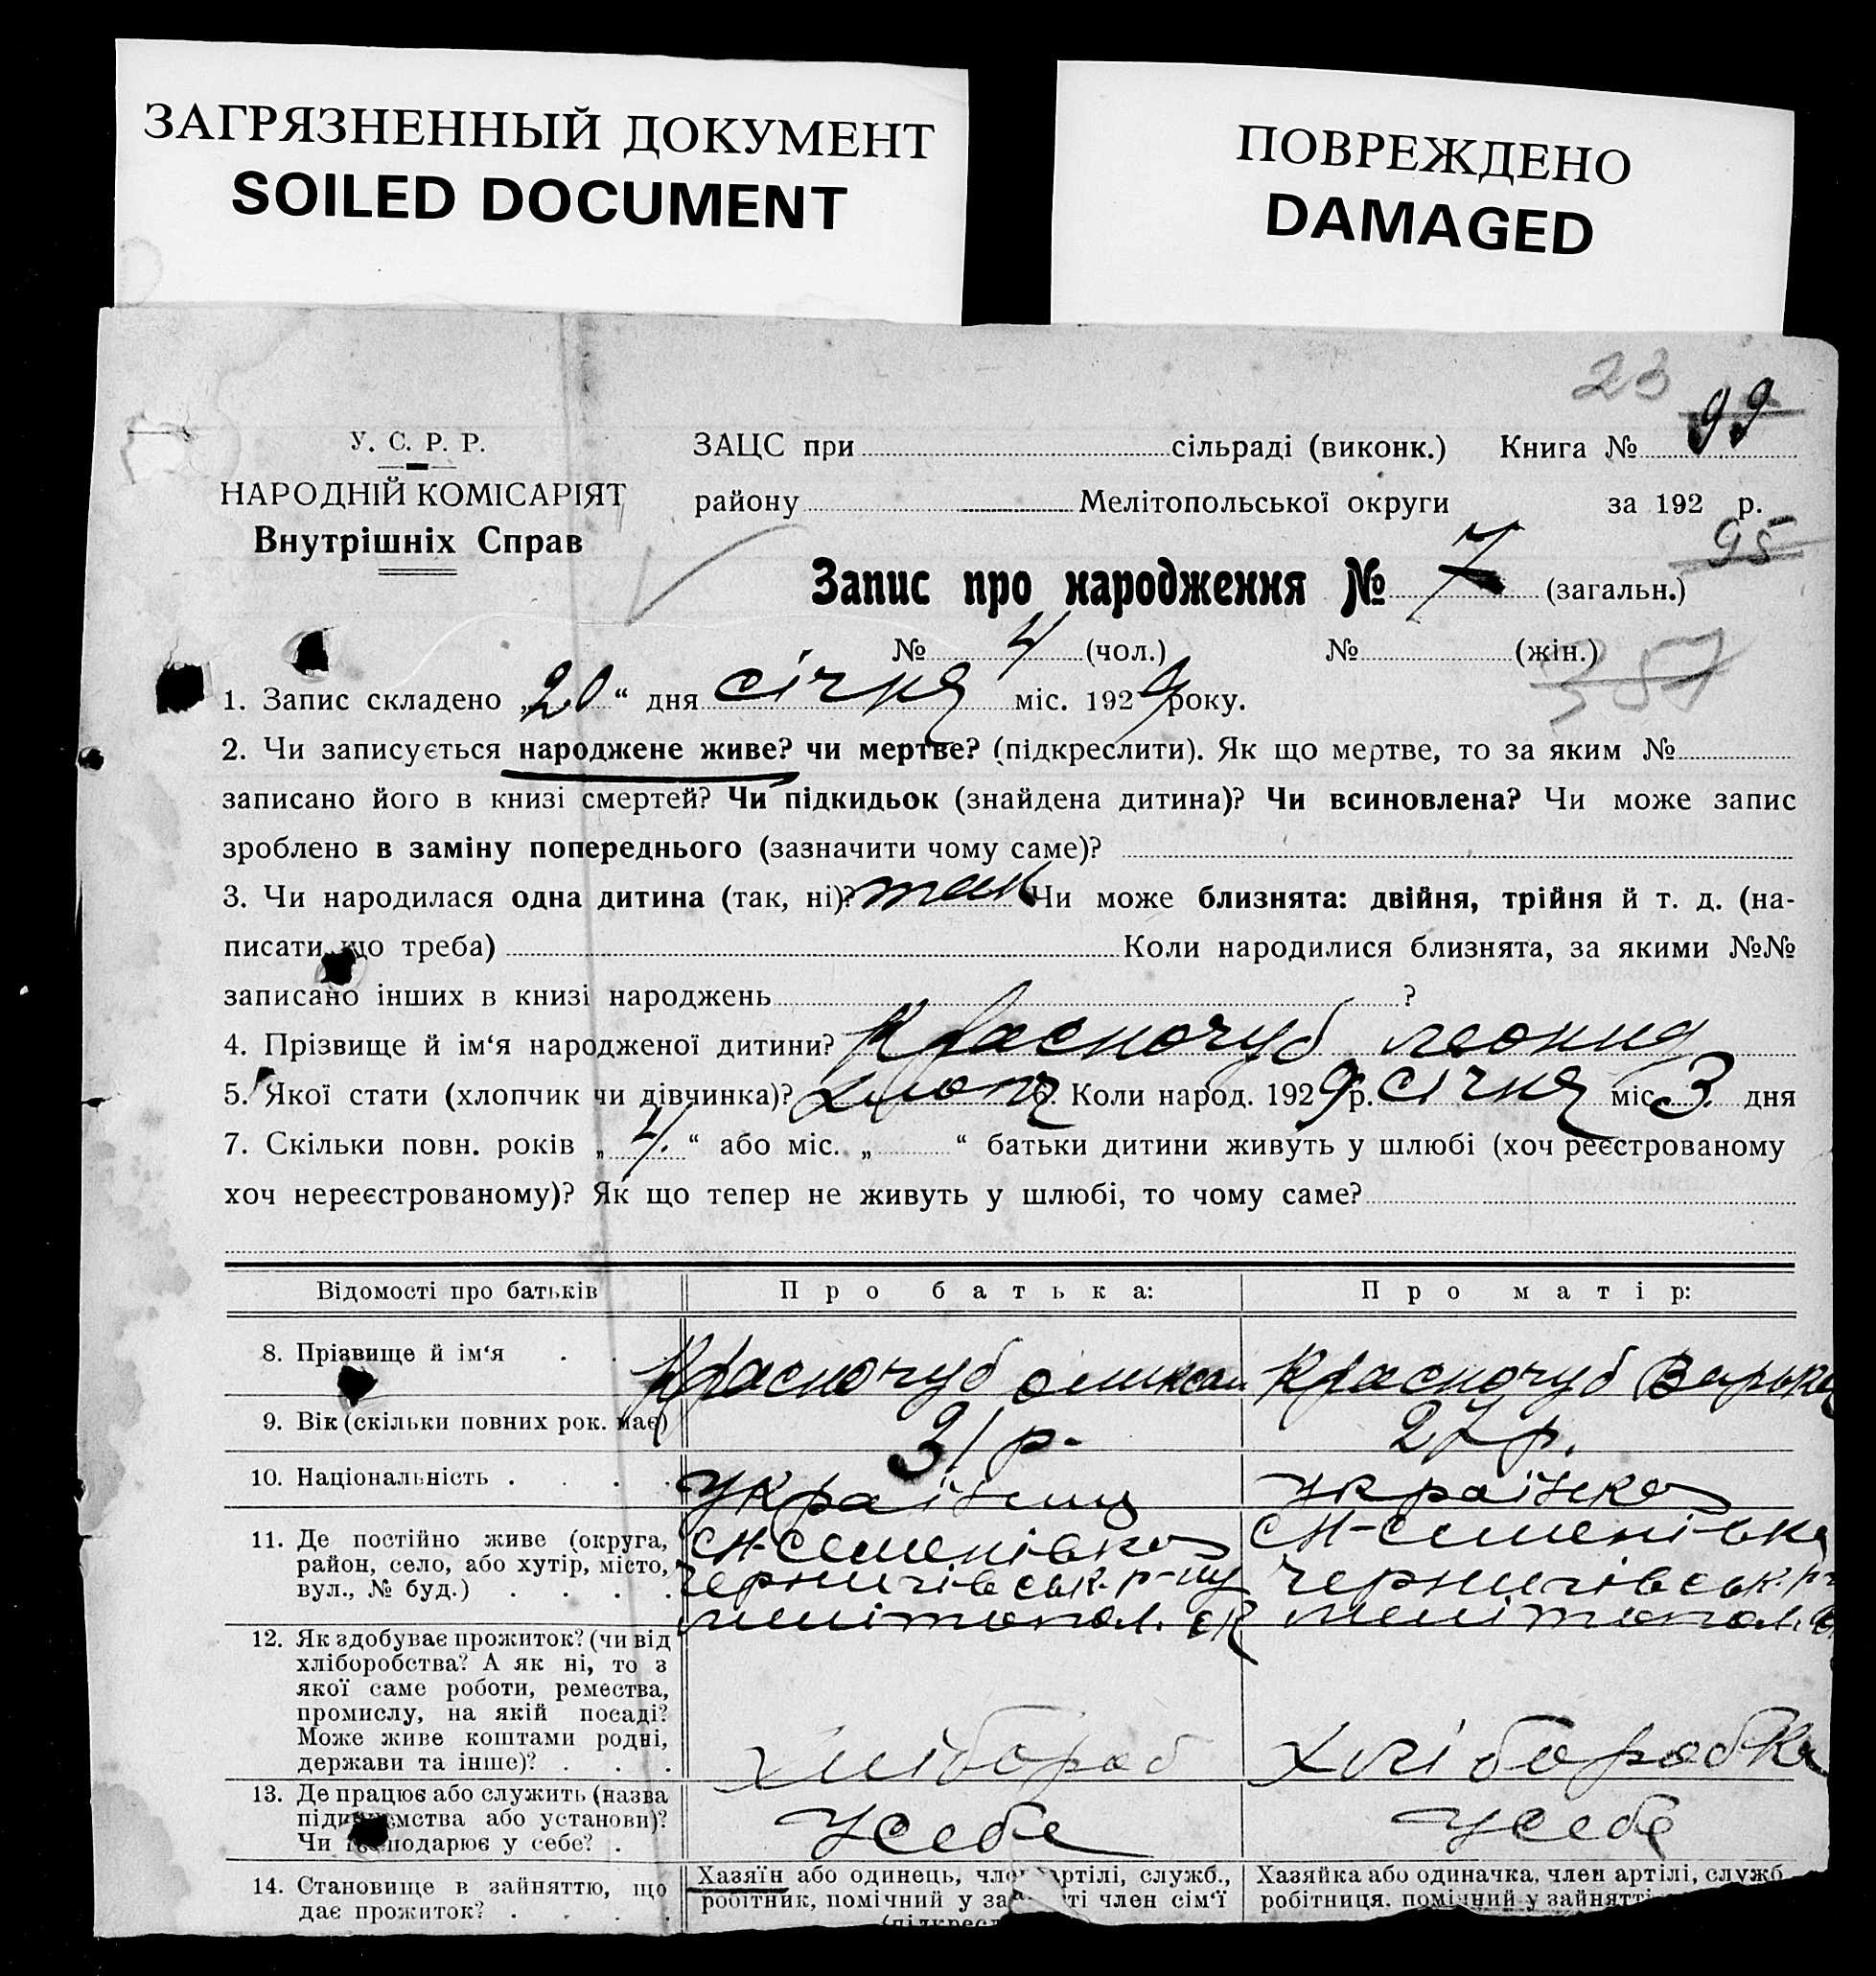 ЗАГРЯЗНЕННЫЙ ДОКУМЕНТ
SOILED DOCUMENT
ПОВРЕЖДЕНО
DAMAGED
23
99
У. С. Р. Р.
НАРОДНІЙ КОМІСАРІЯТ
Внутрішніх Справ
ЗАЦС при сільраді (виконк.) Книга №
району Мелітопольської округи за 192 р.
95
Запис про народження № 7 (загальн.)
№ 4 (чол.) № (жін.)
357
1. Запис складено „20“ дня січня міс. 1929 року.
2. Чи записується народжене живе? чи мертве? (підкреслити). Як що мертве, то за яким №
записано його в книзі смертей? Чи підкидьок (знайдена дитина)? Чи всиновлена? Чи може запис
зроблено в заміну попереднього (зазначити чому саме)?
3. Чи народилася одна дитина (так, ні)? так Чи може близнята: двійня, трійня й т. д. (на-
писати що треба) Коли народилися близнята, за якими №№
записано інших в книзі народжень ?
4. Прізвище й ім‘я народженої дитини? Красночуб леонид
5. Якої стати (хлопчик чи дівчинка)? хлопч 6. Коли народ. 1929 р. січня міс. 3 дня
7. Скільки повн. років „4.“ або міс. „ “ батьки дитини живуть у шлюбі (хоч реєстрованому
хоч нереєстрованому)? Як що тепер не живуть у шлюбі, то чому саме?
Відомості про батьків Про батька: Про матір:
8. Прізвище й ім‘я Красночуб Красночуб Варька
9. Вік (скільки повних рок. має) 31 р. 27 р.
10. Національність українец українка
11. Де постійно живе (округа, район, село, або хутір, місто, вул., № буд.)
с Н-Семенівка с Н-Семенівка
Чернигівськ. р-ну Чернигівськ. р-
мелітопол. ок мелітопол.
12. Як здобуває прожиток? (чи від
хліборобства? А як ні, то з
якої саме роботи, ремества,
промислу, на якій посаді?
Може живе коштами родні,
держави та інше)? хлібороб хліборобка
13. Де працює або служить (назва
підприємства або установи)?
Чи господарює у себе? у себе у себе
14. Становище в зайняттю, що
дає прожиток?
Хазяїн або одинець, член артілі, служб.,
робітник, помічний у занятті член сім‘ї
(підкресл
Хазяйка або одиначка, член артілі, служб
робітниця, помічний у зайнятті